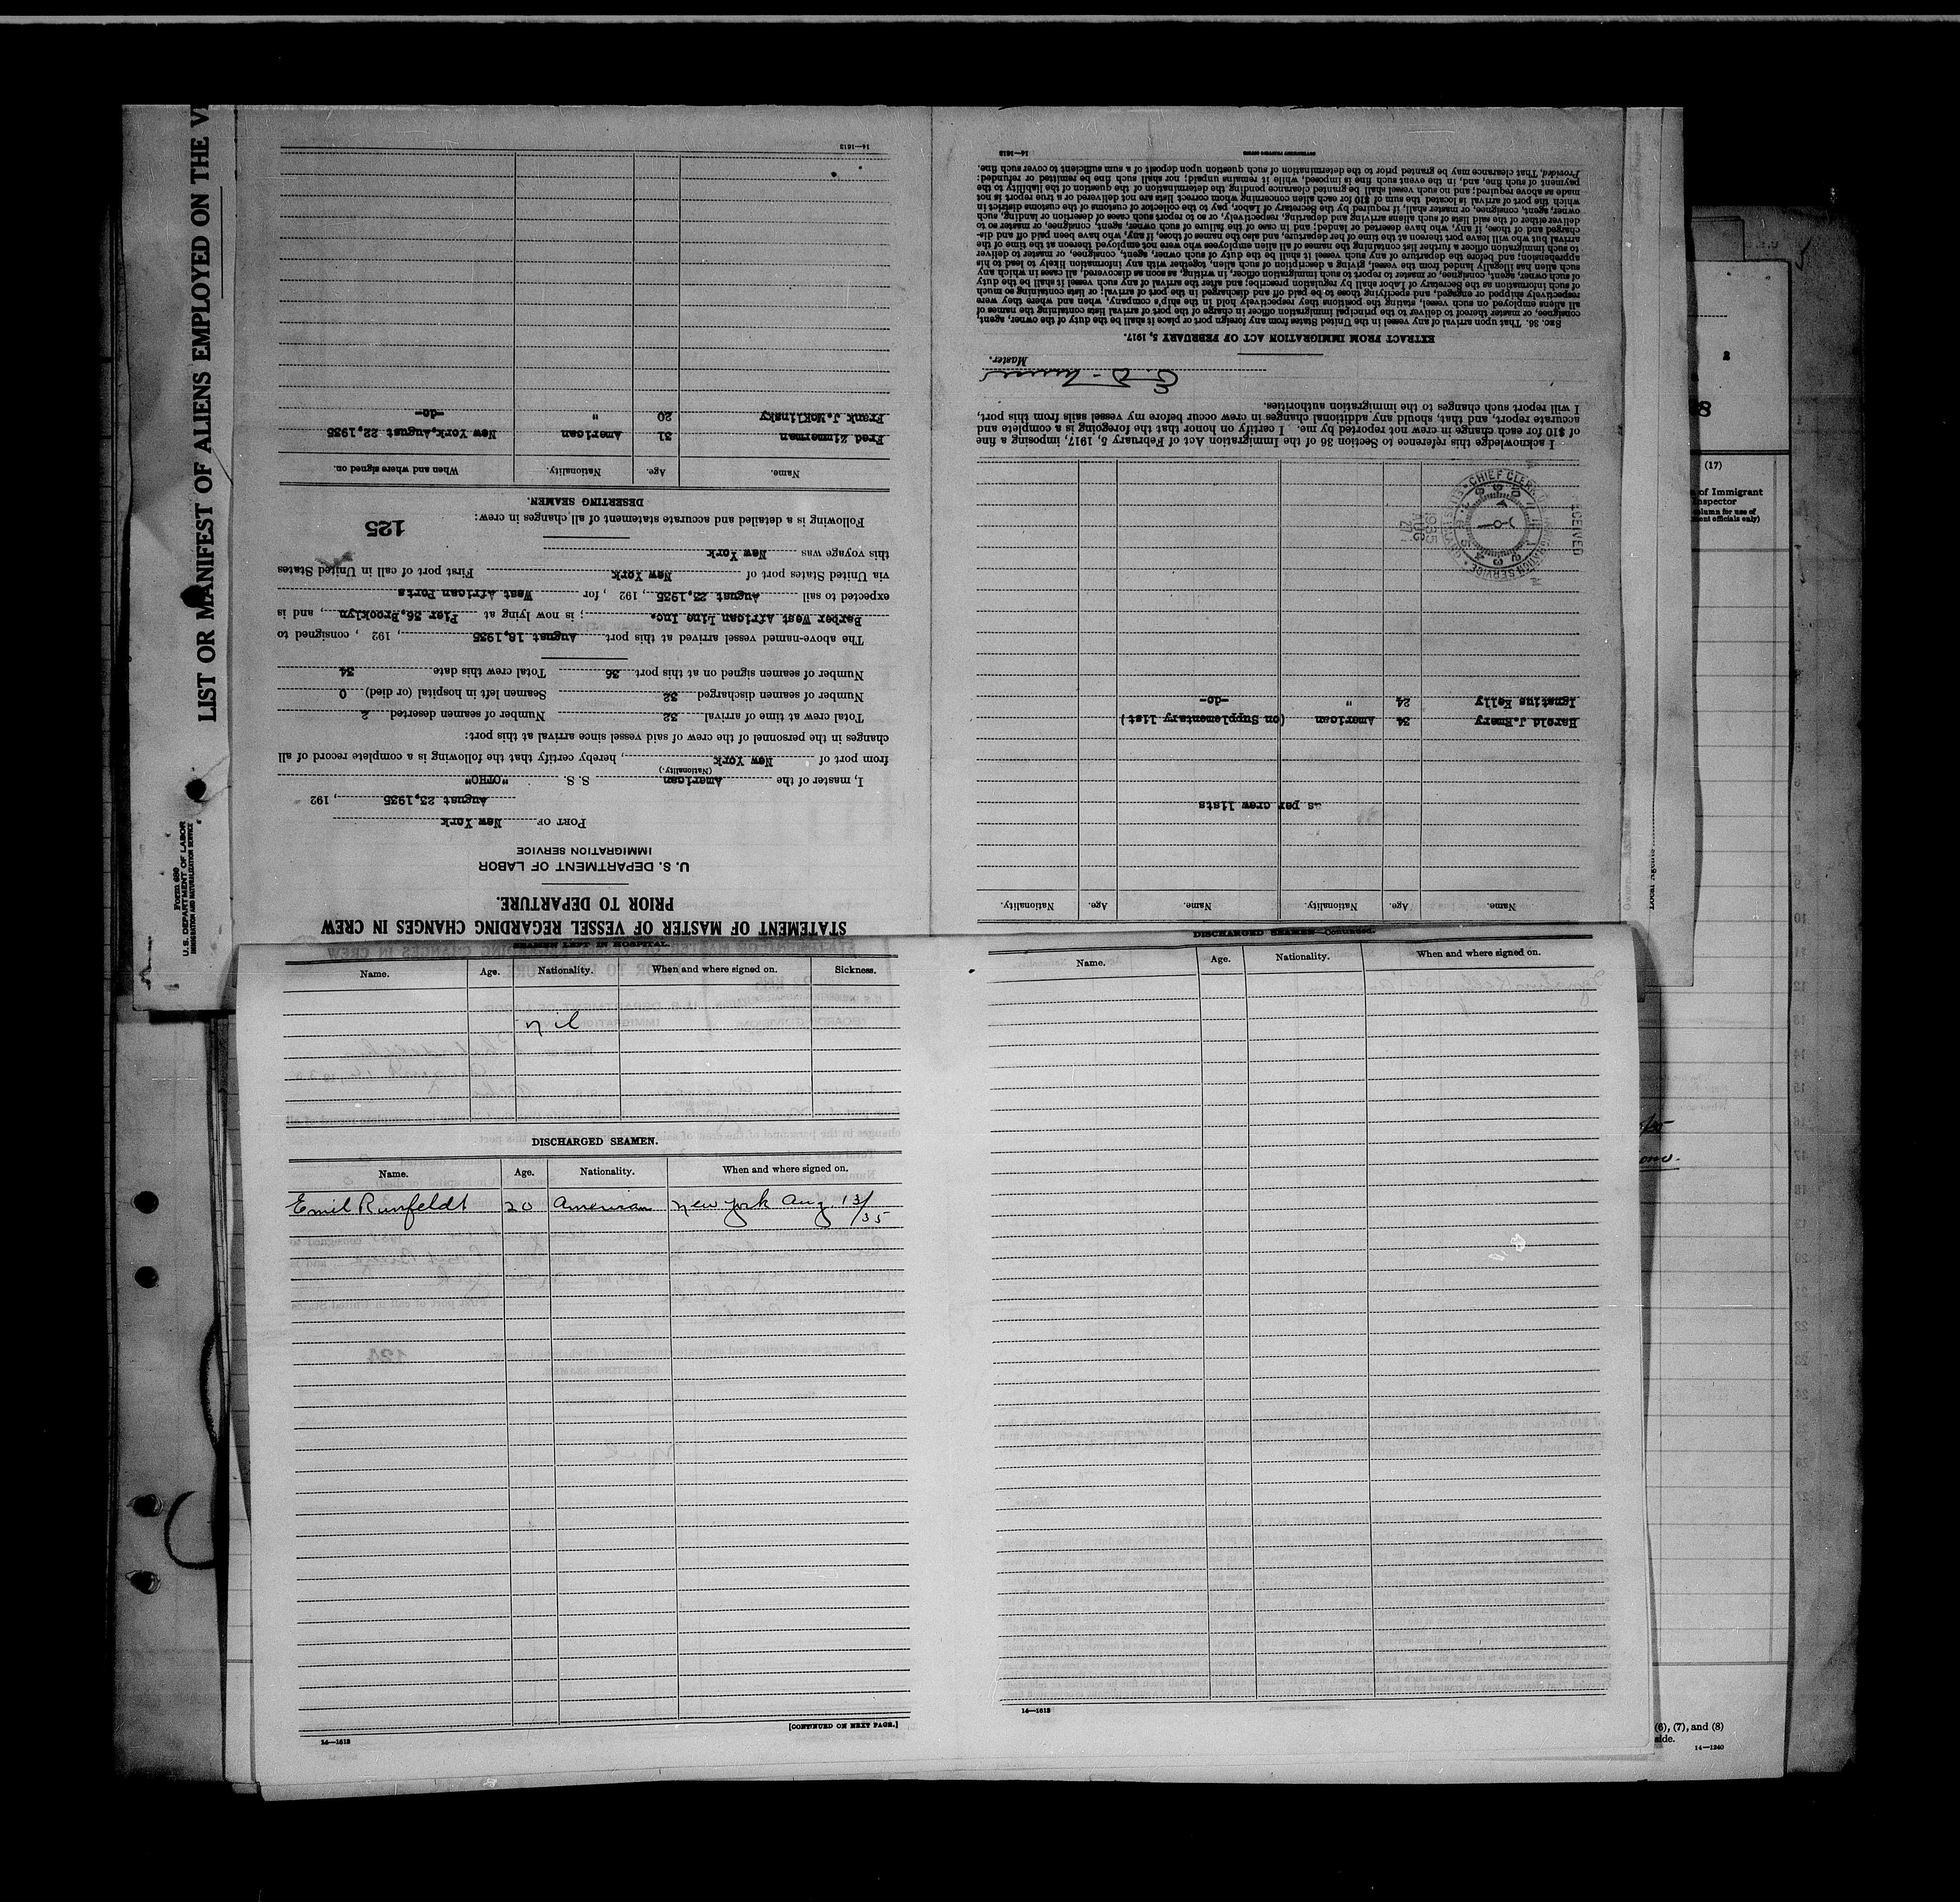 LIST OR MANIFEST OF ALIENS EMPLOYED ON THE V
Form 689
U. S. DEPARTMENT OF LABOR
IMMIGRATION AND NATURALIZATION SERVICE
STATEMENT OF MASTER OF VESSEL REGARDING CHANGES IN CREW
PRIOR TO DEPARTURE.
U. S. DEPARTMENT OF LABOR
IMMIGRATION SERVICE
PORT OF New York
August 23,1935, 192
I, master of the American S. S. "OTHO"
(Nationality.)
from port of New York, hereby certify that the following is a complete record of all
changes in the personnel of the crew of said vessel since arrival at this port:
Total crew at time of arrival 32 Number of seamen deserted 2
Number of seamen discharged 32 Seamen left in hospital (or died) 0
Number of seamen signed on at this port 36 Total crew this date 34
The above-named vessel arrived at this port August 18,1935, 192 , consigned to
Barber West African Line Inc. ; is now lying at Pier 36, Brooklyn, and is
expected to sail August 23,1935, 192 , for West African Ports
via United States port of New York First port of call in United States
this voyage was New York
Following is a detailed and accurate statement of all changes in crew:
125
DESERTING SEAMEN.
Name. Age. Nationality. When and where signed on.
Fred Zimmerman 31 American New York, August 22,1935
Frank J. McKlinsky 20 " -do-
14—1613
Name. Age. Nationality. Name. Age. Nationality.
as per crew lists
Harold J. Emery 34 American (on Supplementary list)
Ignatius Kelly 24 " -do-
RECEIVED
CHIEF CLERK
IMMIGRATION SERVICE
1935 AUG 27
I acknowledge this reference to Section 36 of the Immigration Act of February 5, 1917, imposing a fine
of $10 for each change in crew not reported by me. I certify on honor that the foregoing is a complete and
accurate report, and that, should any additional changes in crew occur before my vessel sails from this port,
I will report such changes to the immigration authorities.
Master.
EXTRACT FROM IMMIGRATION ACT OF FEBRUARY 5, 1917.
SEC. 36. That upon arrival of any vessel in the United States from any foreign port or place it shall be the duty of the owner, agent,
consignee, or master thereof to deliver to the principal immigration officer in charge of the port of arrival lists containing the names of
all aliens employed on such vessel, stating the positions they respectively hold in the ship's company, when and where they were
respectively shipped or engaged, and specifying those to be paid off and discharged in the port of arrival; or lists containing so much
of such information as the Secretary of Labor shall by regulation prescribe; and after the arrival of any such vessel it shall be the duty
of such owner, agent, consignee, or master to report to such immigration officer, in writing, as soon as discovered, all cases in which any
such alien has illegally landed from the vessel, giving a description of such alien, together with any information likely to lead to his
apprehension; and before the departure of any such vessel it shall be the duty of such owner, agent, consignee, or master to deliver
to such immigration officer a further list containing the names of all alien employees who were not employed thereon at the time of the
arrival but who will leave port thereon at the time of her departure, and also the names of those, if any, who have been paid off and dis-
charged and of those, if any, who have deserted or landed; and in case of the failure of such owner, agent, consignee, or master so to
deliver either of the said lists of such aliens arriving and departing, respectively, or so to report such cases of desertion or landing, such
owner, agent, consignee, or master, shall, if required by the Secretary of Labor, pay to the collector of customs of the customs district in
which the port of arrival is located the sum of $10 for each alien concerning whom correct lists are not delivered or a true report is not
made as above required; and no such vessel shall be granted clearance pending the determination of the question of the liability to the
payment of such fine, and, in the event such fine is imposed, while it remains unpaid; nor shall such fine be remitted or refunded:
Provided, That clearance may be granted prior to the determination of such question upon deposit of a sum sufficient to cover such fine.
14—1613
SEAMEN LEFT IN HOSPITAL.
Name. Age. Nationality. When and where signed on. Sickness.
nil
DISCHARGED SEAMEN.
Name. Age. Nationality. When and where signed on.
Emil Runfeldt 20 American New York Aug 13/35
[CONTINUED ON NEXT PAGE.]
14—1613
DISCHARGED SEAMEN—Continued.
Name. Age. Nationality. When and where signed on.
14—1613
2
8
(17)
of Immigrant
Inspector
column for use of
ment officials only)
(6), (7), and (8)
side.
14—1240